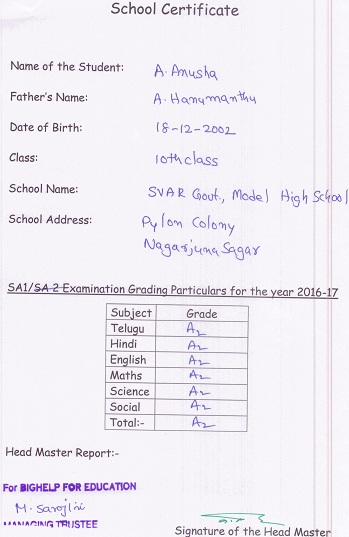 School Certificate
Name of the Student: A. Anusha
Father's Name: A. Hanumanthu
Date of Birth: 18-12-2002
Class: 10th class
School Name: SVAR Govt., Model High School
School Address: Pylon Colony
Nagarjuna Sagar
SA1/SA 2 Examination Grading Particulars for the year 2016-17
Subject Grade
Telugu A2
Hindi A2
English A2
Maths A2
Science A2
Social A2
Total:- A2
Head Master Report:-
For BIGHELP FOR EDUCATION
M. Sarojini
MANAGING TRUSTEE
Signature of the Head Master